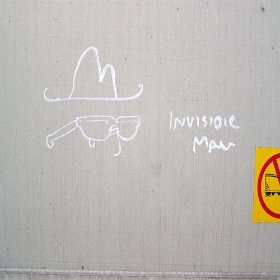 INVISIBLE
MAN